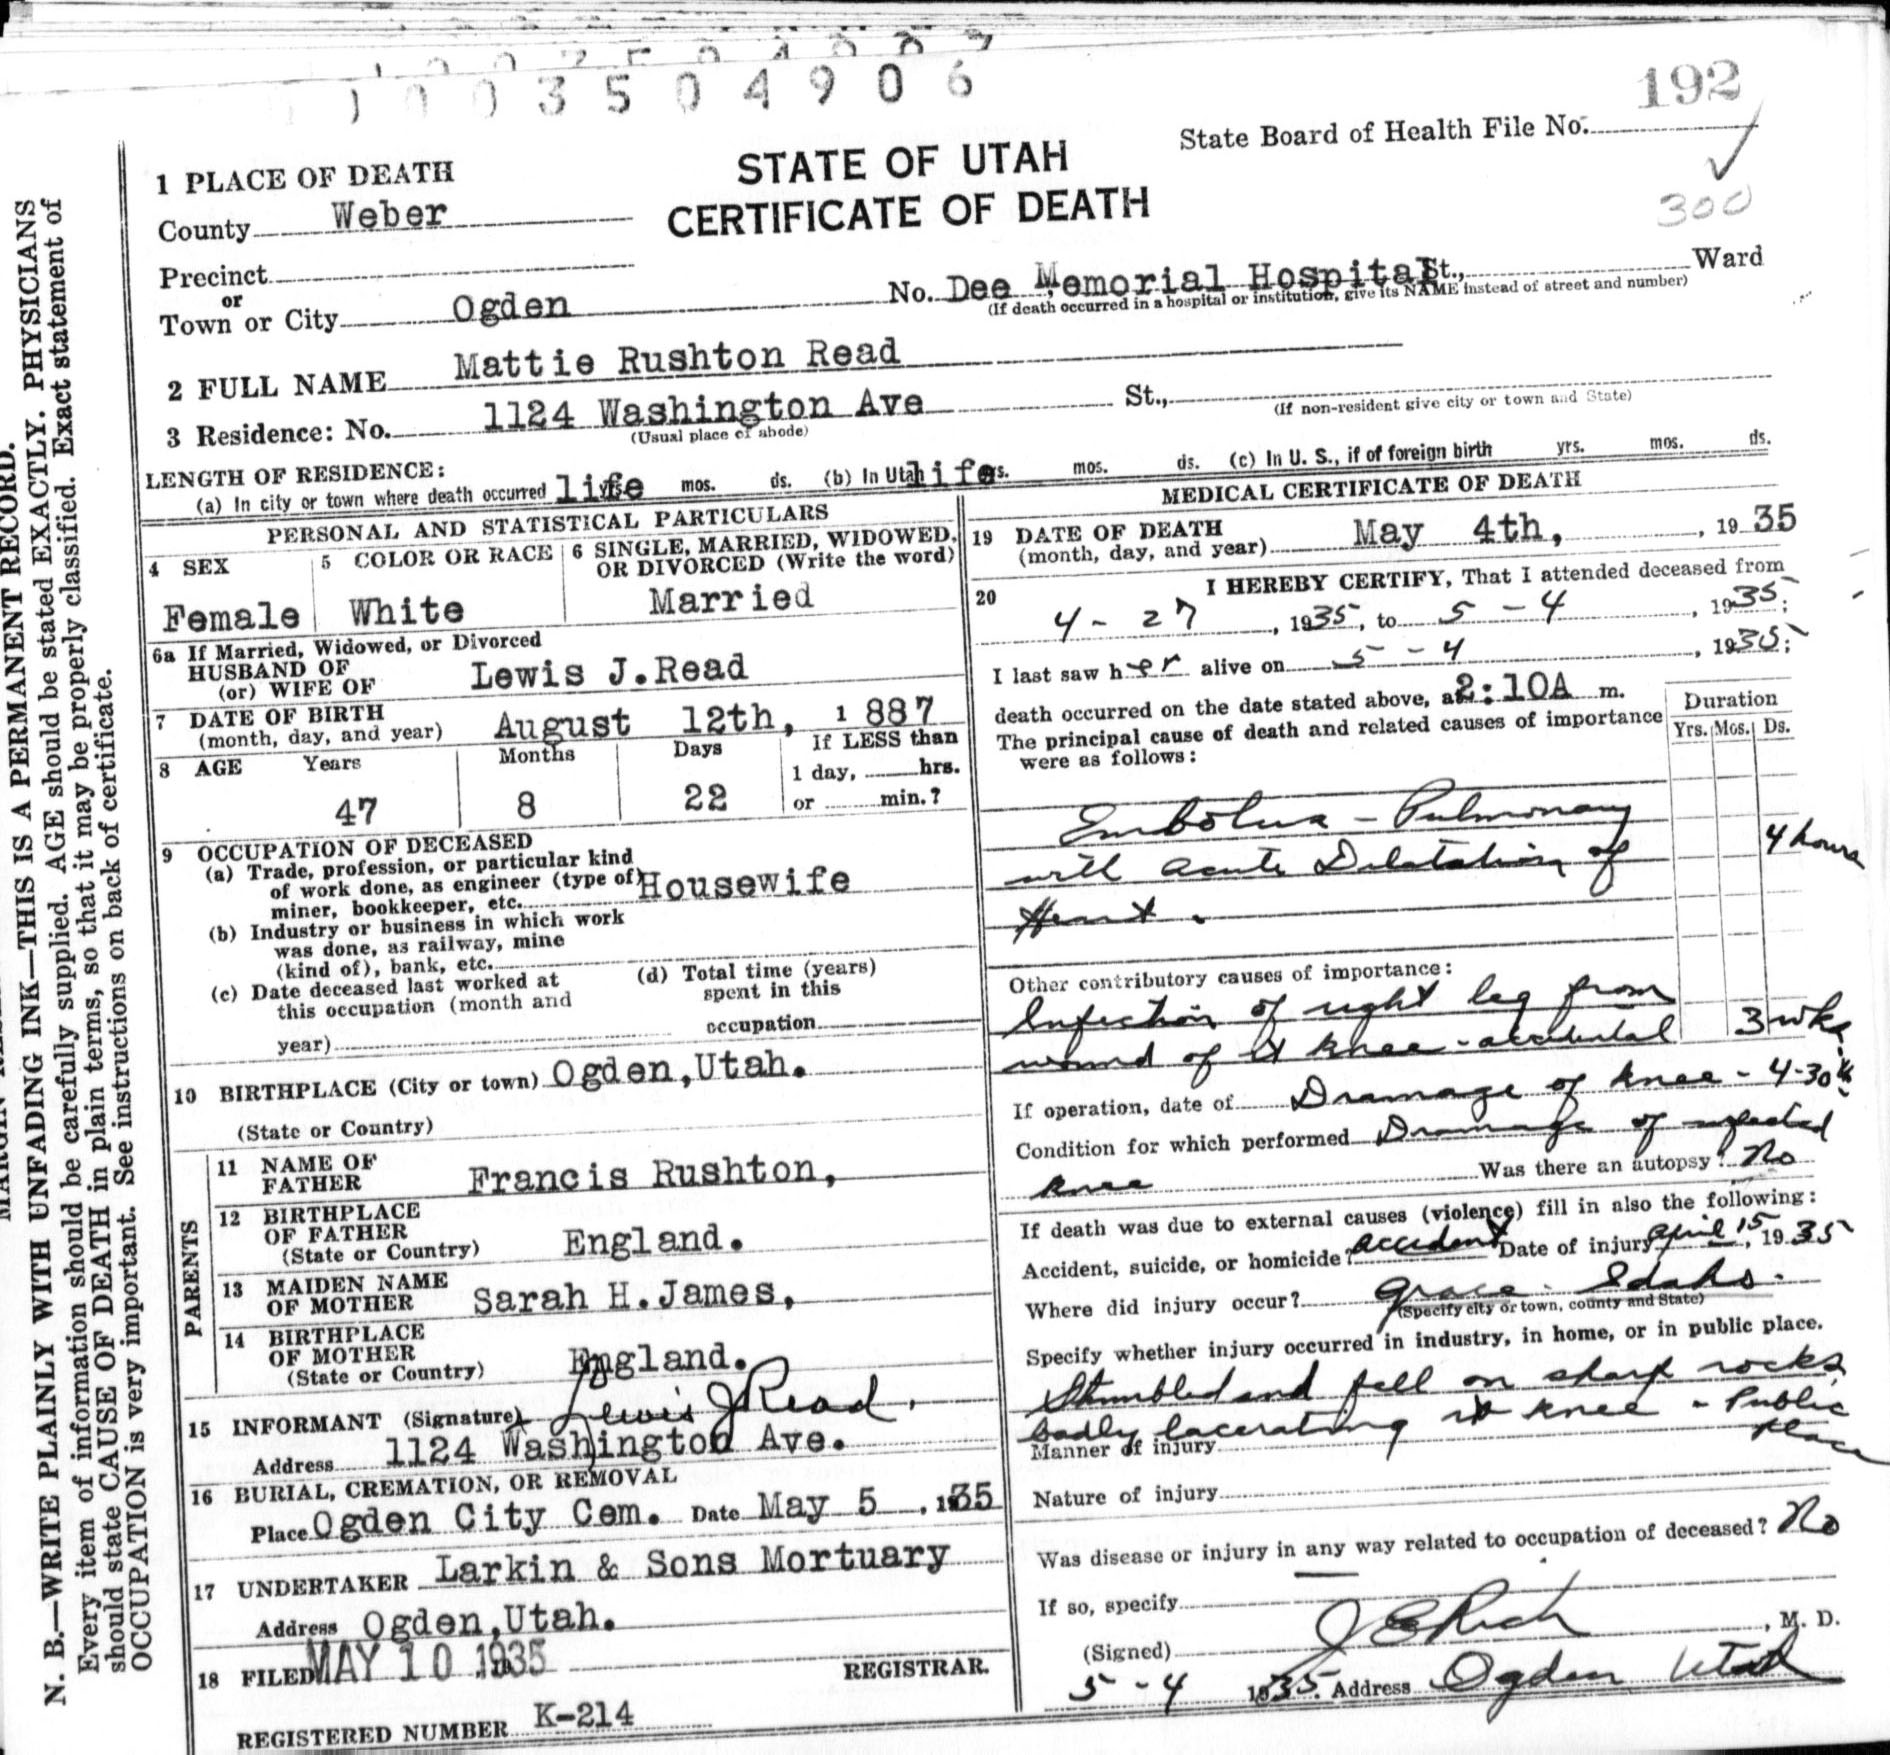 1003504906
192
State Board of Health File No.
300
STATE OF UTAH
CERTIFICATE OF DEATH
1 PLACE OF DEATH
County Weber
Precinct
or
Town or City Ogden No. Dee Memorial Hospital St., Ward
(If death occurred in a hospital or institution, give its NAME instead of street and number)
2 FULL NAME Mattie Rushton Read
3 Residence: No. 1124 Washington Ave St.,
(Usual place of abode) (If non-resident give city or town and State)
LENGTH OF RESIDENCE:
(a) In city or town where death occurred life yrs. mos. ds. (b) In Utah life yrs. mos. ds. (c) In U. S., if of foreign birth yrs. mos. ds.
PERSONAL AND STATISTICAL PARTICULARS
4 SEX
Female
5 COLOR OR RACE
White
6 SINGLE, MARRIED, WIDOWED,
OR DIVORCED (Write the word)
Married
6a If Married, Widowed, or Divorced
HUSBAND OF
(or) WIFE OF Lewis J.Read
7 DATE OF BIRTH
(month, day, and year) August 12th, 1887
8 AGE Years Months Days If LESS than
1 day, hrs.
47 8 22 or min.?
9 OCCUPATION OF DECEASED
(a) Trade, profession, or particular kind
of work done, as engineer (type of) Housewife
miner, bookkeeper, etc.
(b) Industry or business in which work
was done, as railway, mine
(kind of), bank, etc.
(c) Date deceased last worked at
this occupation (month and
year)
(d) Total time (years)
spent in this
occupation
10 BIRTHPLACE (City or town) Ogden,Utah.
(State or Country)
PARENTS
11 NAME OF
FATHER Francis Rushton,
12 BIRTHPLACE
OF FATHER
(State or Country) England.
13 MAIDEN NAME
OF MOTHER Sarah H.James,
14 BIRTHPLACE
OF MOTHER
(State or Country) England.
15 INFORMANT (Signature) Lewis J Read.
Address 1124 Washington Ave.
16 BURIAL, CREMATION, OR REMOVAL
Place Ogden City Cem. Date May 5, 1935
17 UNDERTAKER Larkin & Sons Mortuary
Address Ogden,Utah.
18 FILED MAY 10 1935 REGISTRAR.
REGISTERED NUMBER K-214
MEDICAL CERTIFICATE OF DEATH
19 DATE OF DEATH
(month, day, and year) May 4th, , 1935
20 I HEREBY CERTIFY, That I attended deceased from
4 - 27, 1935, to 5 - 4, 1935;
I last saw her alive on 5 - 4, 1935;
death occurred on the date stated above, at 2:10A m.
The principal cause of death and related causes of importance
were as follows:
Duration
Yrs. Mos. Ds.
Embolus - Pulmonary
with acute Dilatation of
Heart.
4 hours
Other contributory causes of importance:
Infection of right leg from
wound of rt knee - accidental 3 wks.
If operation, date of Drainage of knee - 4-30
Condition for which performed Drainage of infected
knee Was there an autopsy? No
If death was due to external causes (violence) fill in also the following:
Accident, suicide, or homicide? accident Date of injury April 15, 1935
Where did injury occur? Grace - Idaho.
(Specify city or town, county and State)
Specify whether injury occurred in industry, in home, or in public place.
Stumbled and fell on sharp rocks
badly lacerating rt knee - Public
place
Manner of injury
Nature of injury
Was disease or injury in any way related to occupation of deceased? No
If so, specify
(Signed) J E Rich, M. D.
5 - 4 1935. Address Ogden Utah
N. B.—WRITE PLAINLY WITH UNFADING INK—THIS IS A PERMANENT RECORD.
Every item of information should be carefully supplied. AGE should be stated EXACTLY. PHYSICIANS
should state CAUSE OF DEATH in plain terms, so that it may be properly classified. Exact statement of
OCCUPATION is very important. See instructions on back of certificate.